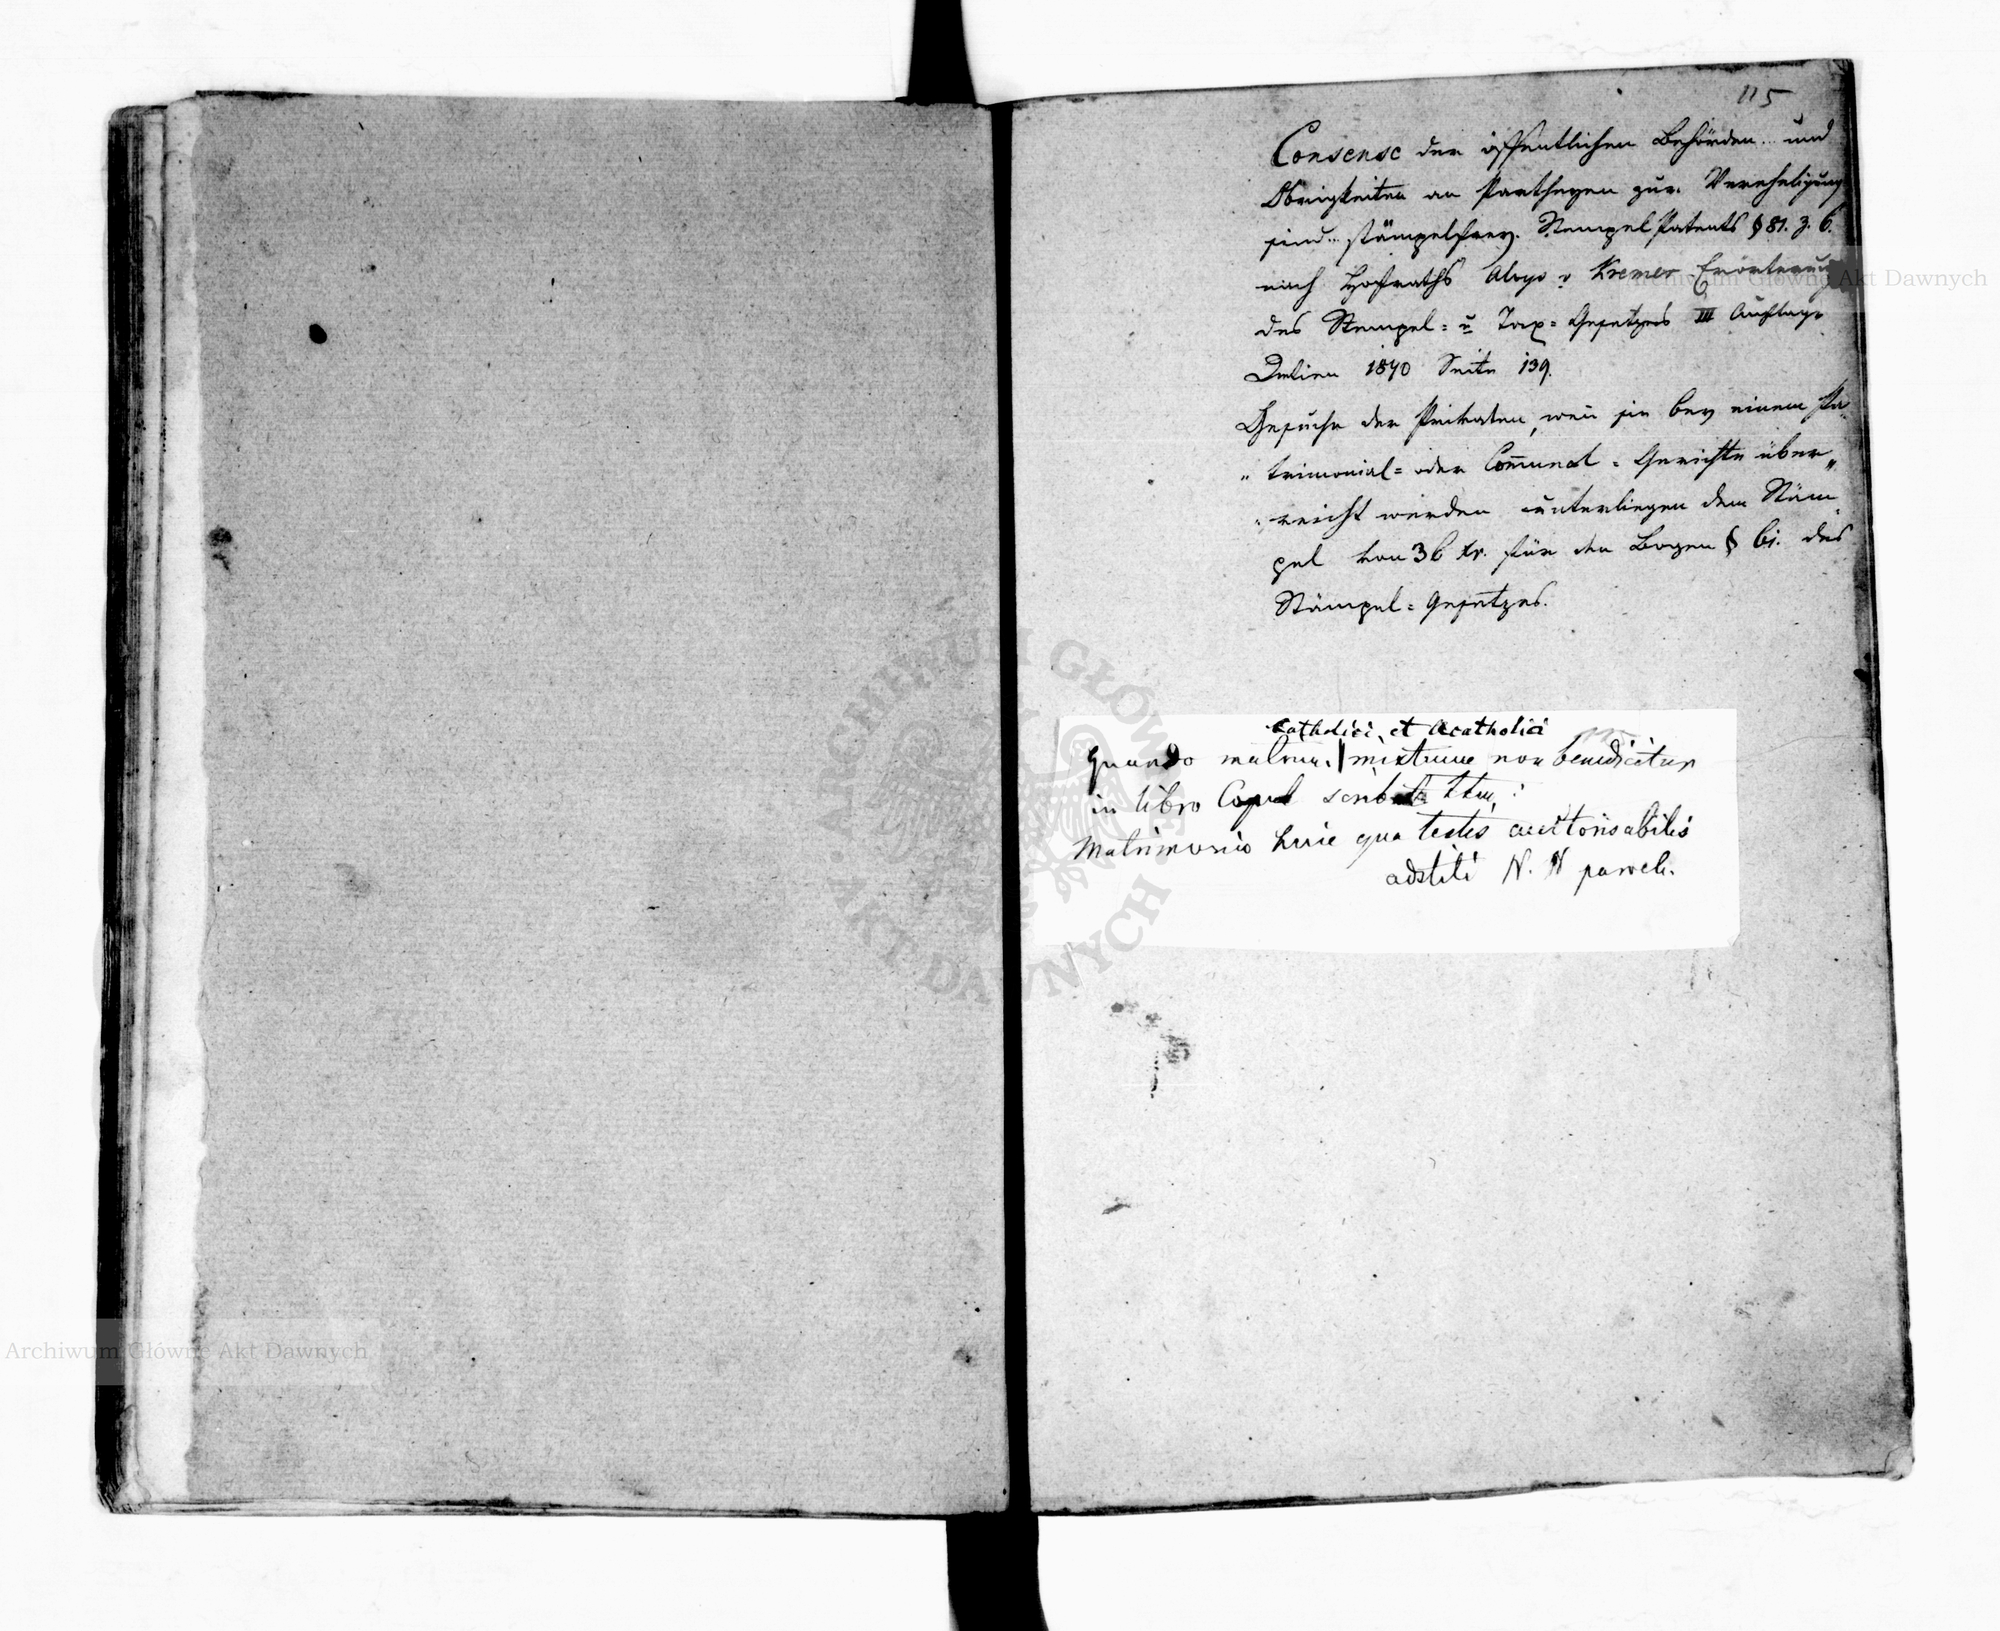 115
Consense der öffentlichen Behörden und
Obrigkeiten an Partheyen zur Vereheligung
sind stämpelfrey. Stempel Patents § 81. Z. 6.
nach Hofraths Aloys v Kremer Erörterung
des Stempel= u Tax= Gesetzes III Auflage
Wien 1840 Seite 139.
Gesuche der Privaten, wen̄ sie bey einem Pa„
„trimonial= oder Com̄unal= Gerichte über„
„reicht werden unterliegen dem Stäm„
pel von 36 Xr. für den Bogen § 61. des
Stämpel= Gesetzes.
Catholici et Acatholici
Quando matrim. mixtum non benedicitur
in libro Copul scribatur
Matrimonio huic qua testis auctorisabilis
adstiti N. N paroch.
ARCHIWUM GŁÓWNE AKT DAWNYCH
Archiwum Główne Akt Dawnych
Archiwum Główne Akt Dawnych